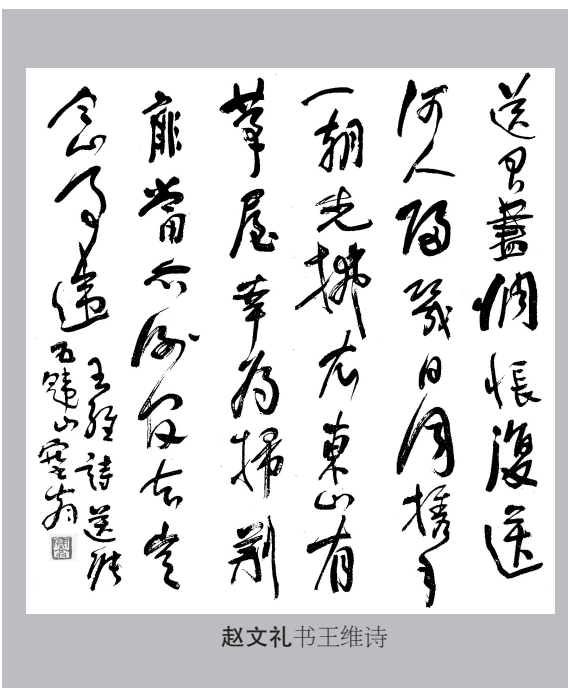 送君盡惆悵復送
何人歸幾日同携手
一朝先拂衣東山有
茅屋幸為掃荆
扉當亦謝官去豈
令心事違
王維詩送張
五歸山
赵文礼书王维诗